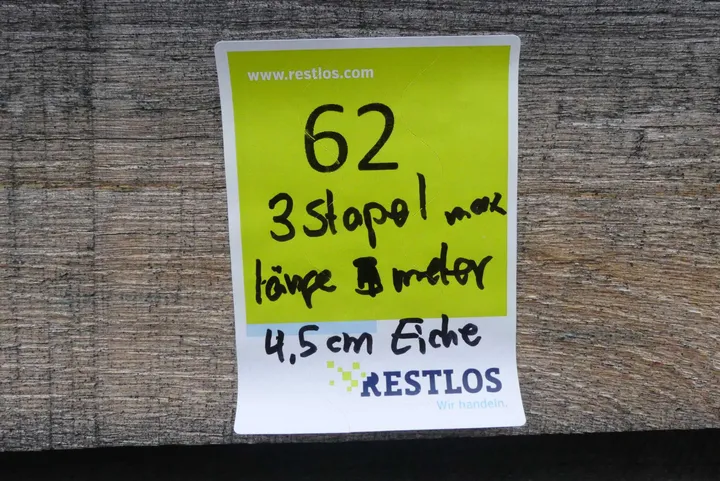 www.restlos.com
62
3 Stapel max
länge meter
4,5 cm Eiche
RESTLOS
Wir handeln.